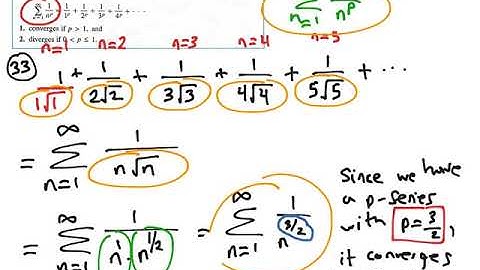 ∑ 1/n^p = 1/1^p + 1/2^p + 1/3^p + 1/4^p + ⋯
1. converges if p > 1, and
2. diverges if 0 < p ≤ 1.
n=1 n^p
n=1 n=2 n=3 n=4 n=5
33
1/(1√1) + 1/(2√2) + 1/(3√3) + 1/(4√4) + 1/(5√5) + ⋯
= ∑_{n=1}^{∞} 1/(n√n)
= ∑_{n=1}^{∞} 1/(n^1 · n^{1/2}) = ∑_{n=1}^{∞} 1/n^{3/2}
Since we have
a p-series
with p=3/2,
it converges